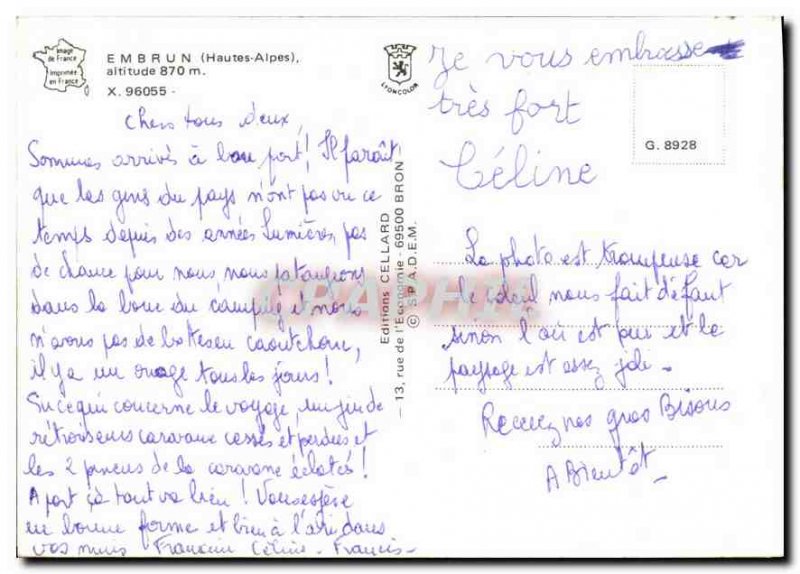 Image
de France
Imprimée
en France
EMBRUN (Hautes-Alpes),
altitude 870 m.
X. 96055 -
LYONCOLOR
G. 8928
Chers tous deux,
Sommes arrivés à bon port! Il paraît
que les gens du pays n'ont pas vu ce
temps depuis des années lumières, pas
de chance pour nous nous pataugeons
dans la boue du camping et nous
n'avons pas de bottes en caoutchouc,
il y a un orage tous les jours!
En ce qui concerne le voyage, un jeu de
rétroviseurs caravane cassés et perdus et
les 2 pneus de la caravane éclatés!
A part çà tout va bien! Vous espère
en bonne forme et bien à l'abri dans
vos murs Francine Céline - Francis -
Editions CELLARD
— 13, rue de l'Economie - 69500 BRON
© S.P.A.D.E.M.
CPAPHIL
Je vous embrasse
très fort
Céline
La photo est trompeuse car
le soleil nous fait défaut
sinon l'air est pur et le
paysage est assez joli -
Recevez nos gros Bisous
A Bientôt -